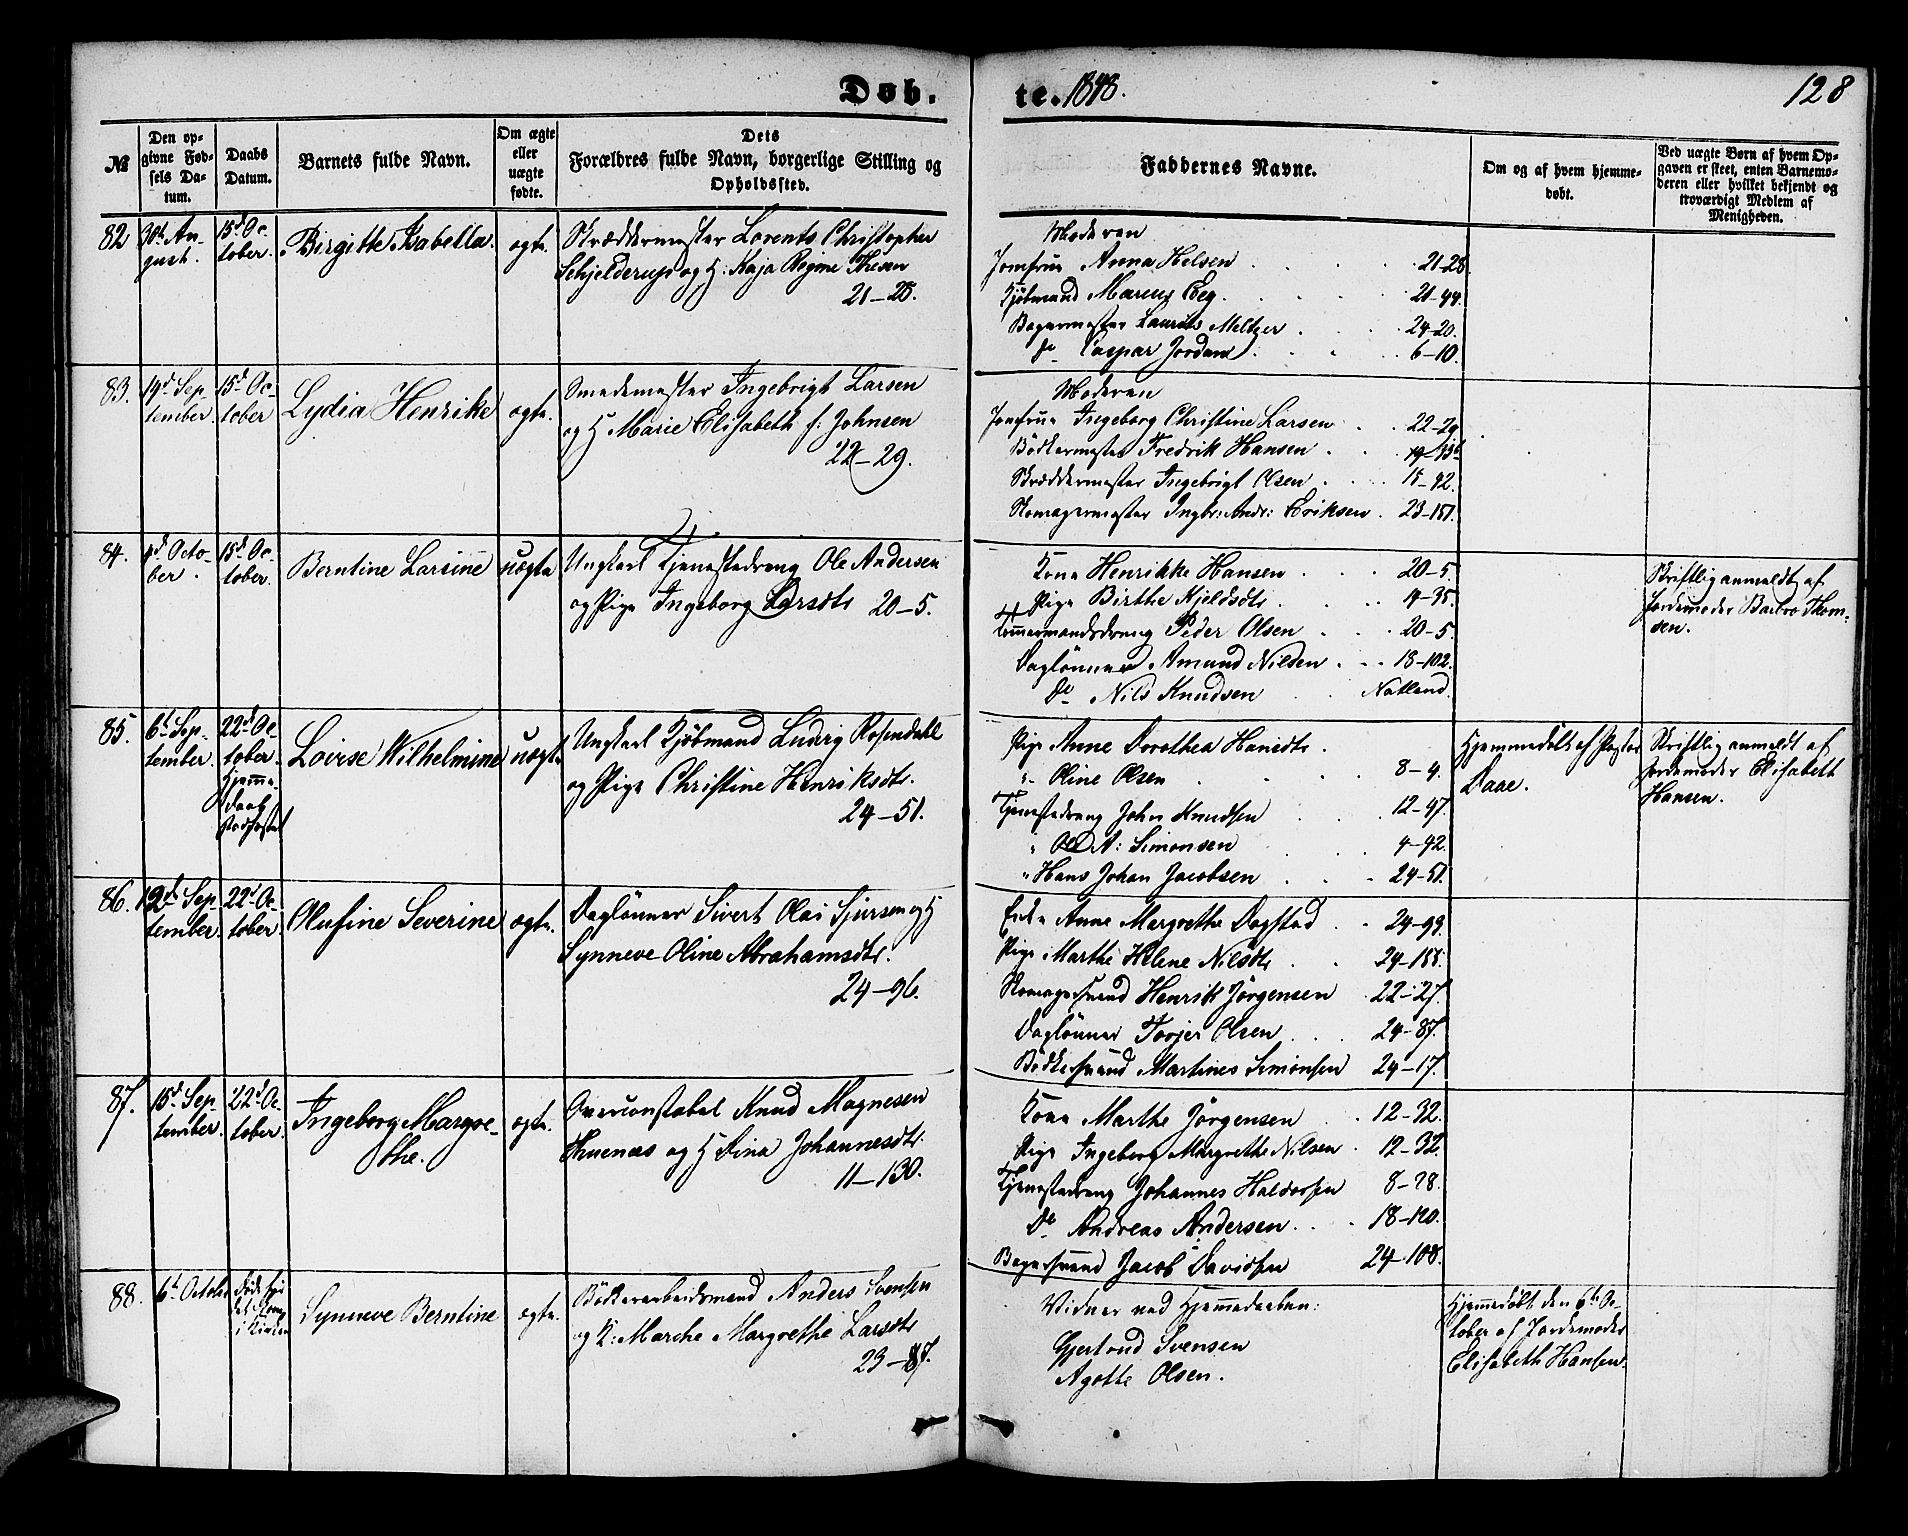 Døb. te. 1848. 128
№
Den opgivne Fødsels Datum.
Daabs Datum.
Barnets fulde Navn.
Om ægte eller uægte fødte.
Dets Forældres fulde Navn, borgerlige Stilling og Opholdssted.
Faddernes Navne.
Om og af hvem hjemmedøbt.
Ved uægte Børn af hvem Opgaven er steet, enten Barnemoderen eller hvilket bekjendt og troværdigt Medlem af Menigheden.
82 30te August. 15d October. Birgitte Isabella. ægte.
Skræddermester Lorents Christopher
Schjelderup og H: Kaja Regine Thesen
21–28.
Moderen
Jomfrue Anna Helsen 21–28.
Kjøbmand Marcus Eeg. 21–44.
Bagermester Laurits Meltzer 24–20.
do Caspar Jordan 6–10.
83. 14d September. 15d October Lydia Henrike ægte.
Smedemester Ingebrigt Larsen
og H Marie Elisabeth f: Johnsen
22–29.
Moderen
Jomfrue Ingeborg Christine Larsen 22–29
Bødkermester Fredrik Hansen
Skræddermester Ingebrigt Olsen 15–42.
Skomagermester Ingbr: Andr: Eriksen. 23–151.
84. 4d October. 15d October. Berntine Larsine uægte
Ungkarl Tjenestedreng Ole Andersen
og Pige Ingeborg Larsdtr 20–5.
Kone Henrikke Hansen 20–5.
Pige Birthe Kjeldsdtr. 4–35.
Tømmermandsdreng Peder Olsen 20–5.
Daglønner Amund Nilsen 18–102.
do Nils Knudsen Natland.
Skriftlig anmeldt af
Jordemoder Barbro Thomsen.
85. 6te September. 22d October. Hjemmedaab stadfæstet Lovise Wilhelmine uægte
Ungkarl Kjøbmand Ludvig Rosendahl
og Pige Christine Henriksdtr.
24–51.
Pige Anne Dorothea Hansdtr.
" Oline Olsen 8–4.
Tjenestedreng John Knudsen 12–47.
" Ole A: Simonsen 4–42.
" Hans Johan Jacobsen 24–51.
Hjemmedøbt af Pastor
Daae.
Skriftlig anmeldt af
Jordemoder Elisabeth
Hansen.
86. 12d September. 22d October. Olufine Severine ægte.
Daglønner Sivert Olai Sjursen og H
Synneve Oline Abrahamsdtr.
24–96.
Enke Anne Margrethe Dagstad 24–99.
Pige Marthe Helene Nilsdtr 24–188.
Skomagersvend Henrik Jørgensen 22–27.
Daglønner Torjer Olsen 24–87.
Bødkersvend Martines Simonsen 24–17.
87. 15d September. 22d October. Ingeborg Margrethe. ægte.
Overconstabel Knud Magnesen
Thuenæs og H Dina Johannesdtr.
11–130.
Kone Marthe Jørgensen 12–32.
Pige Ingeborg Margrethe Nilsen 12–32.
Tjenestedreng Johannes Haldorsen 8–28.
do Andreas Andersen 18–120.
Bagersvend Jacob Davidsen 24–108.
88. 6te October Synneve Berntine ægte.
Bødkerarbeidsmand Anders Svensen
og K: Marthe Margrethe Larsdtr
23–87.
Vidner ved Hjemmedaaben:
Gjertrud Svensen
Agathe Olsen.
Hjemmedøbt den 6te October
af Jordemoder
Elisabeth Hansen.